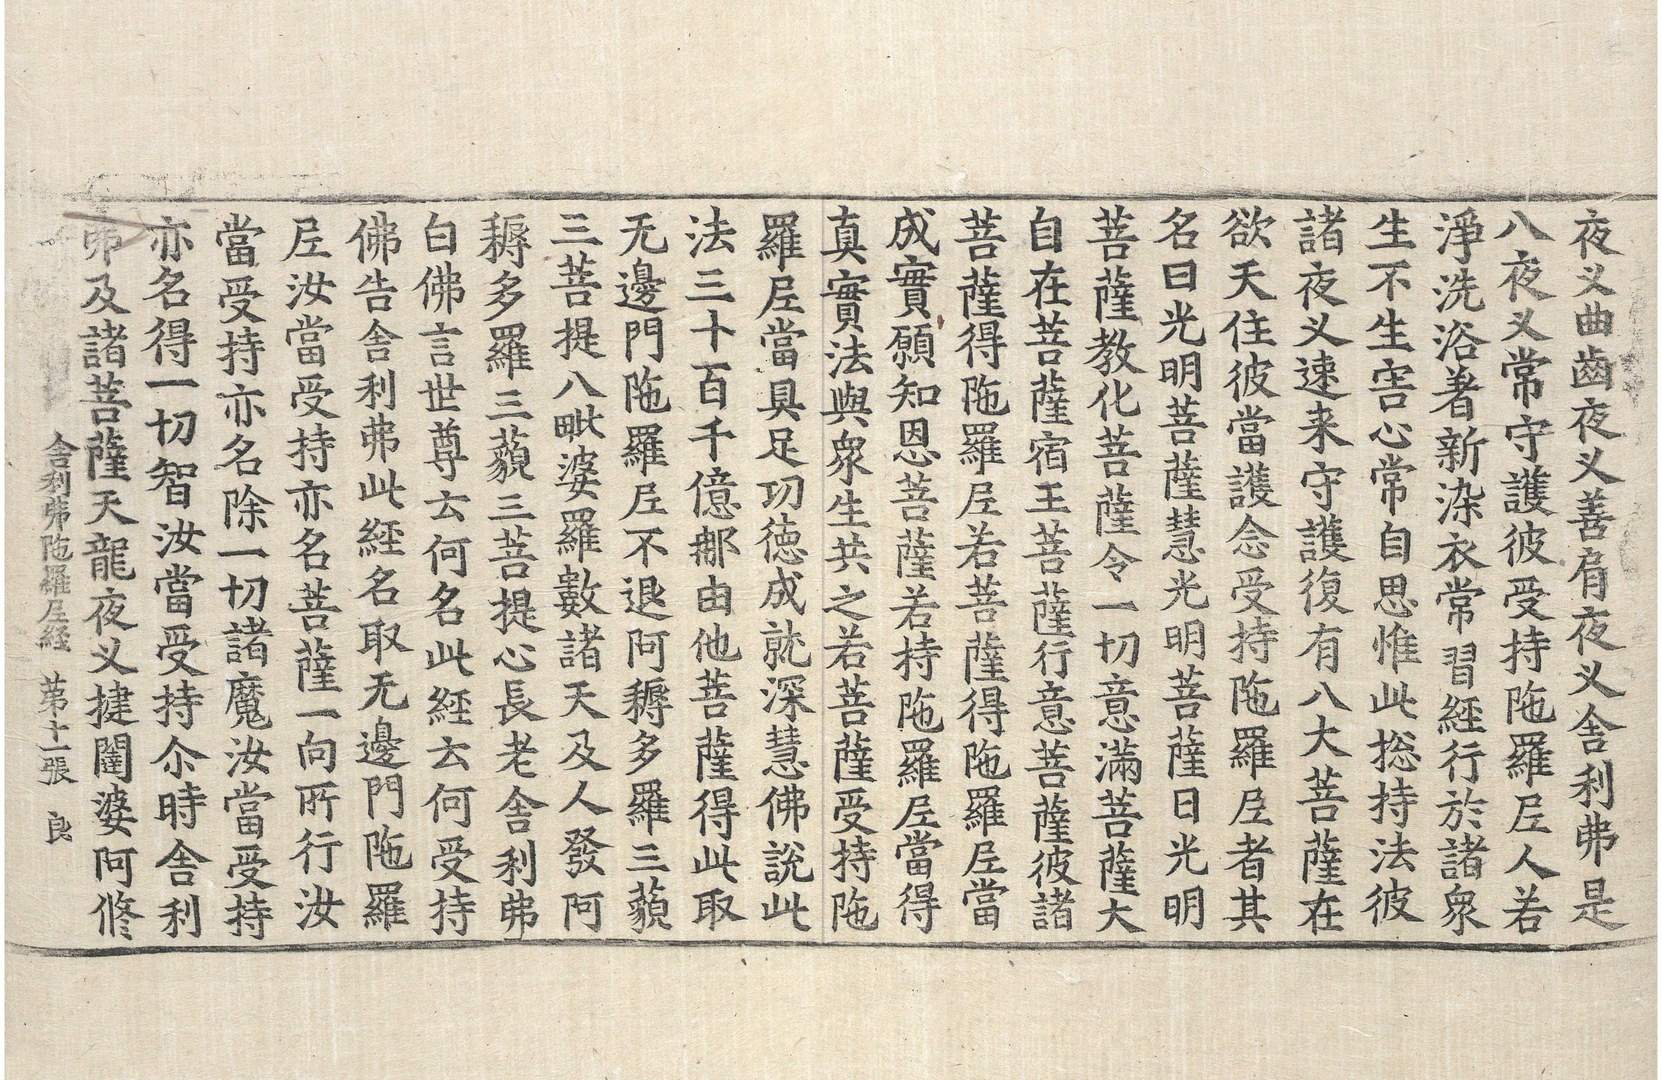 夜叉曲齒夜叉善肩夜叉舍利弗是
八夜叉常守護彼受持陁羅𡰱人若
淨洗浴著新染衣常習經行於諸衆
生不生害心常自思惟此捴持法彼
諸夜叉速来守護復有八大菩薩在
欲天住彼當護念受持陁羅𡰱者其
名曰光明菩薩慧光明菩薩日光明
菩薩教化菩薩令一切意滿菩薩大
自在菩薩宿王菩薩行意菩薩彼諸
菩薩得陁羅𡰱若菩薩得陁羅𡰱當
成實願知恩菩薩若持陁羅𡰱當得
真實法與衆生共之若菩薩受持陁
羅𡰱當具足功徳成就深慧佛說此
法三十百千億那由他菩薩得此取
无邊門陁羅𡰱不退阿耨多羅三藐
三菩提八毗婆羅數諸天及人發阿
耨多羅三藐三菩提心長老舍利弗
白佛言世尊云何名此經云何受持
佛告舍利弗此經名取无邊門陁羅
𡰱汝當受持亦名菩薩一向所行汝
當受持亦名除一切諸魔汝當受持
亦名得一切智汝當受持尒時舍利
弗及諸菩薩天龍夜叉揵闥婆阿修
舍利弗陁羅𡰱經 第十一張 良